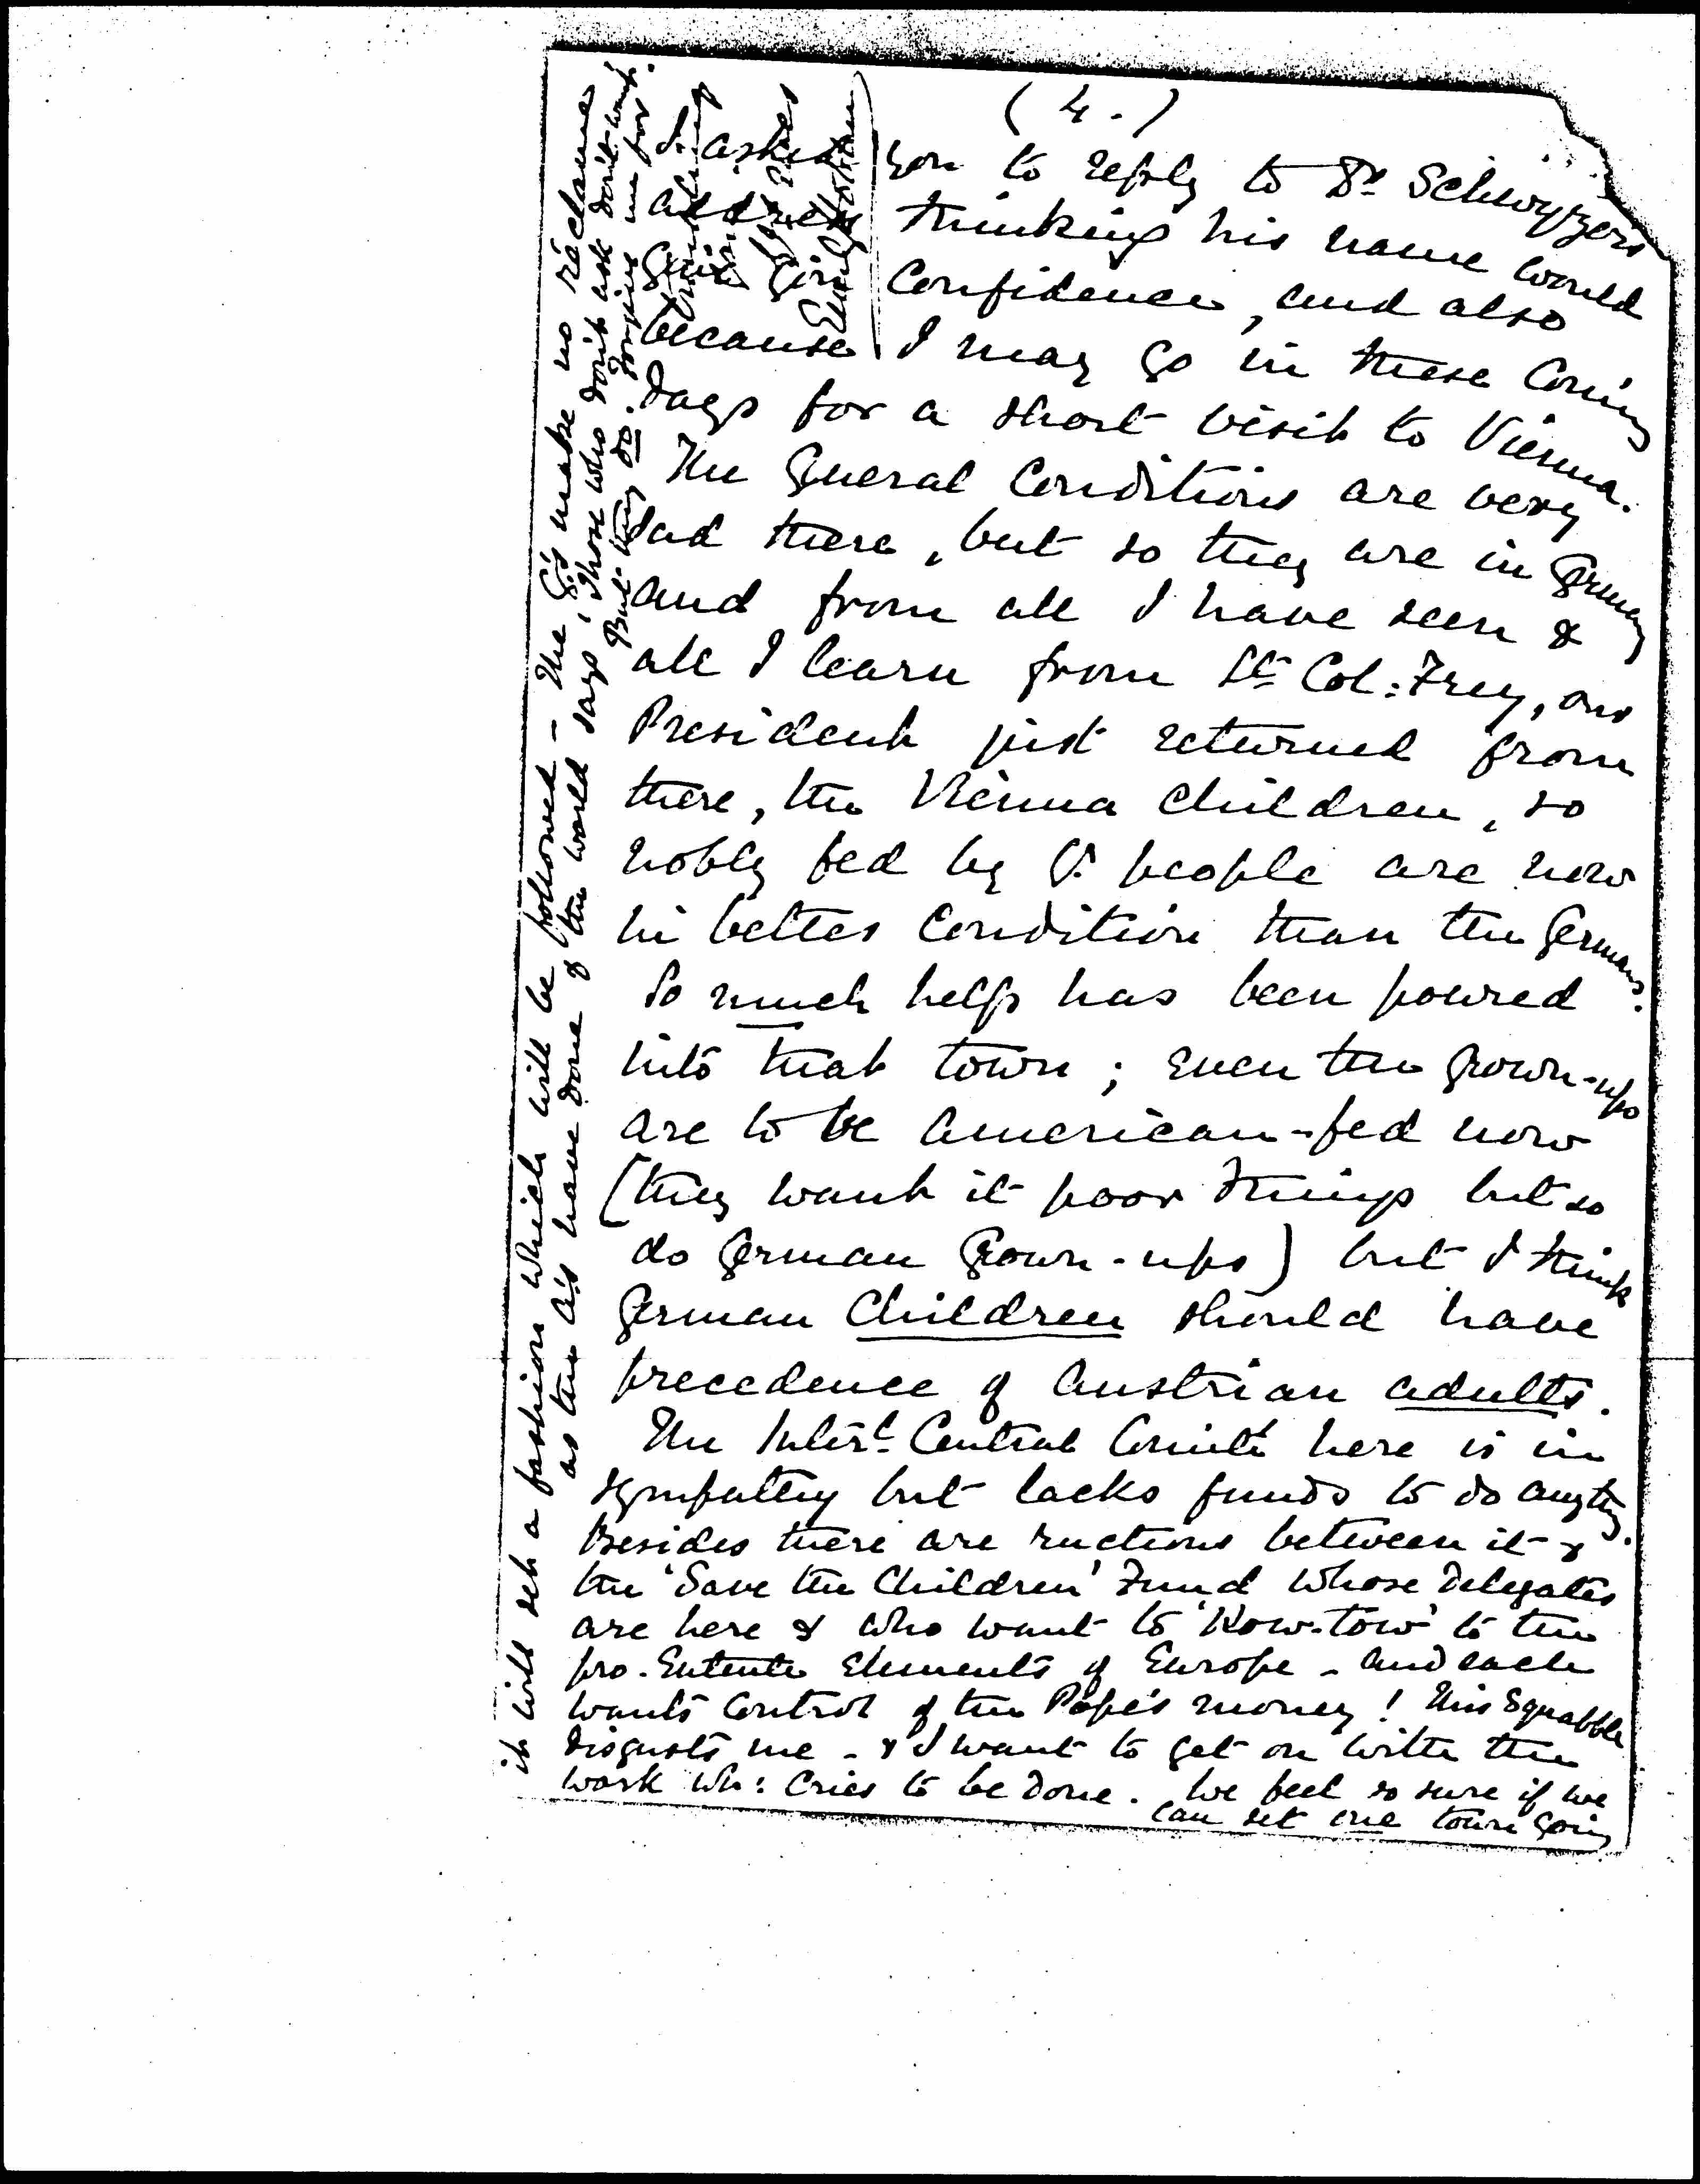 (4.)
I asked you to reply to Dr Schwyzer's
address thinking his name would
give Confidence, and also
because I may go in these Coming
days for a short visit to Vienna.
The General Conditions are very
sad there, but so they are in Germany
and from all I have seen &
all I learn from Lt Col: Frey, our
President just returned from
there, the Vienna Children, so
nobly fed by people are now
in better Condition than the Germans.
So much help has been poured
into that town; even the grown-ups
are to be American-fed now
(they want it poor things but so
do German Grown-ups) but I think
German Children should have
precedence of Austrian adults.
The Inter'l Central Comité here is in
sympathy but lacks funds to do anythg.
Besides there are ructions between it &
the 'Save the Children' Fund whose Delegates
are here & who want to 'Kow-tow' to the
pro-Entente Elements of Europe - and each
wants Control of the Pope's money! This Squabble
disgusts me - & I want to get on with the
work wh: Cries to be done. We feel so sure if we
can set one town going
it will set a fashion which will be followed - The G's make no réclame
as the A's have done & the world says, 'Those who don't ask don't want.'
But they do. me for
Emily Hobhouse